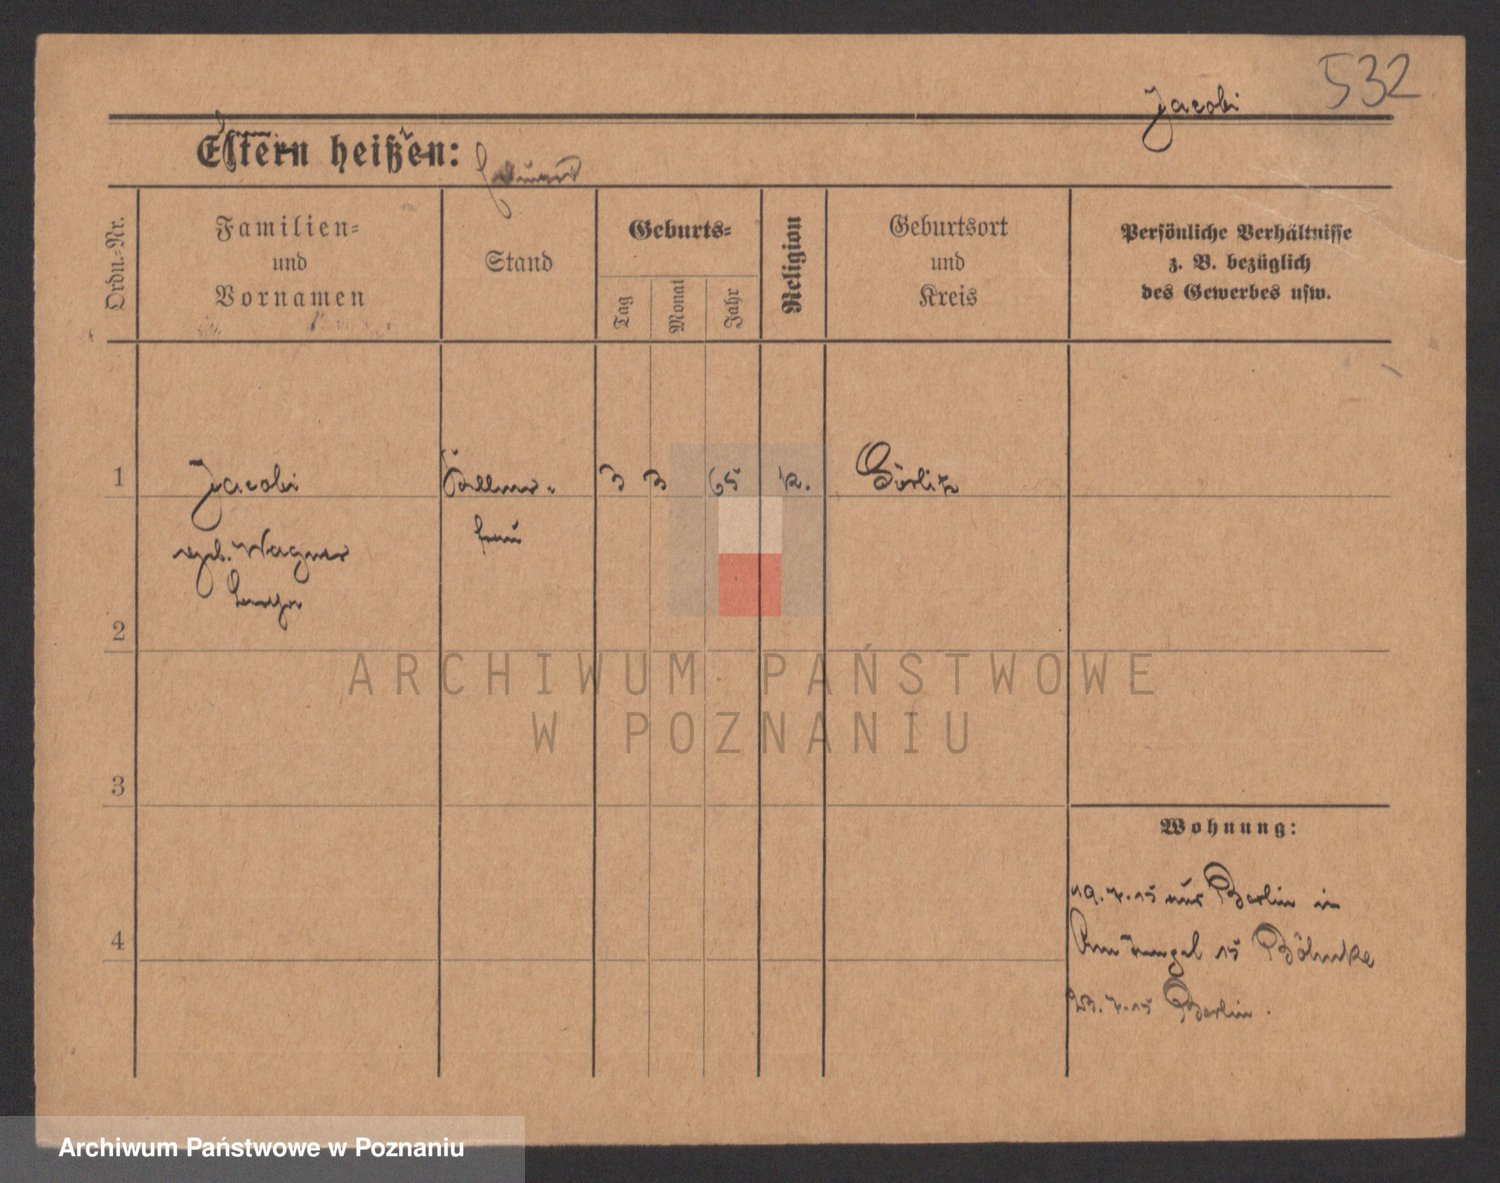 532
Jacobi
Eltern heißen:
Ordn.-Nr.
Familien-
und
Vornamen
Stand
Geburts-
Tag
Monat
Jahr
Religion
Geburtsort
und
Kreis
Persönliche Verhältnisse
z. B. bezüglich
des Gewerbes usw.
1
Jacobi
3 3 65 k. Görlitz
geb. Wagner
frau
2
ARCHIWUM PAŃSTWOWE
W POZNANIU
3
Wohnung:
19.7.15 aus Berlin in
4
15 Böhnke
23.7.15 Berlin.
Archiwum Państwowe w Poznaniu